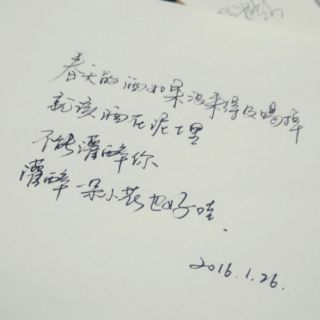 春天的酒如果没来得及喝掉
就该洒在泥土里
不能灌醉你
灌醉一朵小花也好哇.
2016.1.26.